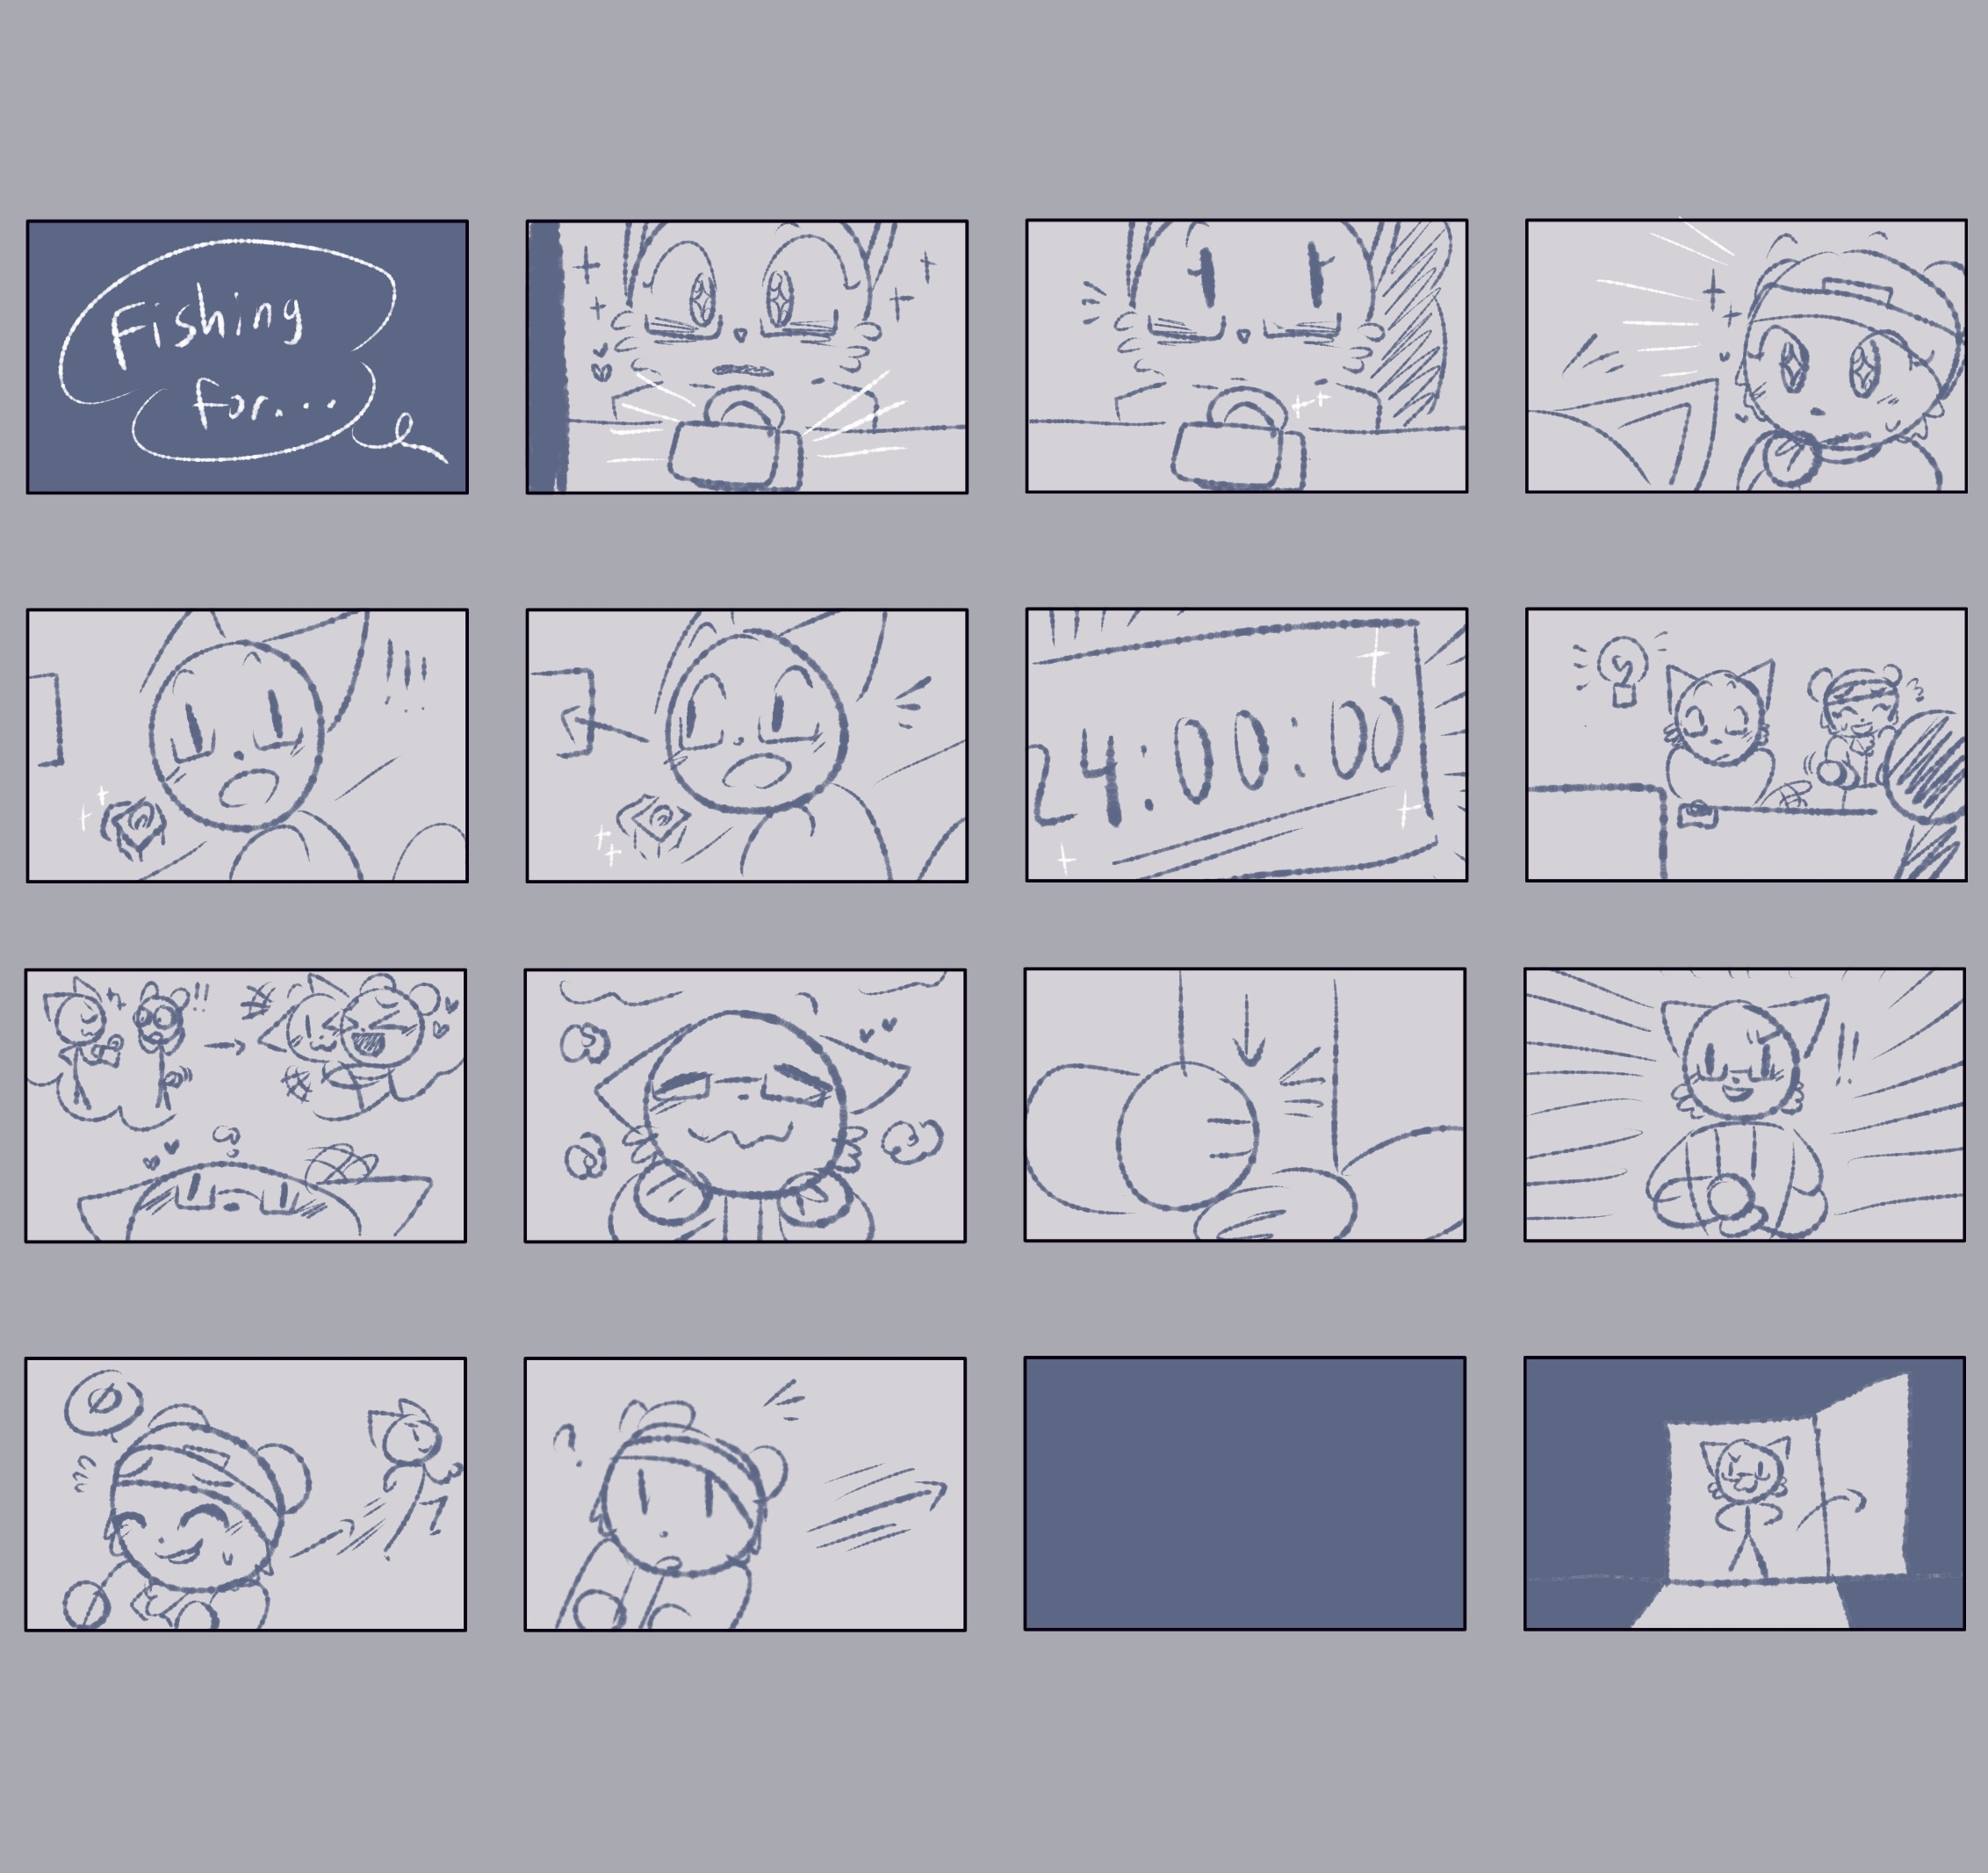 Fishing
for...
!!!
24:00:00
!!
!!
?